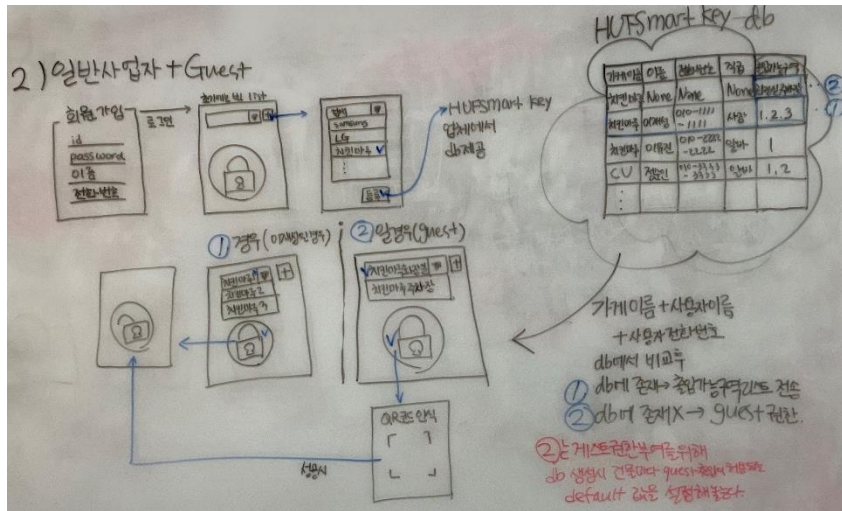 2) 일반사업자 + Guest
회원가입
id
password
이름
전화번호
로그인
list
samsung
LG
치킨마루 ✓
⋮
등록
HUFSmart key
업체에서
db제공
HUFSmart key db
가게이름 이름 전화번호 직급 출입가능구역
치킨마루 None None None
치킨마루 이재성 010-1111-1111 사장 1.2.3
치킨마루 이유진 010-2222-2222 알바 1
CU 010-3333-3333 알바 1,2
⋮
②
①
① 경우(이재성인경우)
+
치킨마루1
치킨마루2
치킨마루3
② 일경우(guest)
+
치킨마루화장실
치킨마루주차장
QR코드인식
성공시
가게이름+사용자이름
+사용자전화번호
db에서 비교후
① db에 존재→출입가능구역리스트 전송
② db에 존재X → guest 권한.
②는 게스트권한부여를위해
db 생성시 건물마다 guest
default 값을 설정해놓는다.